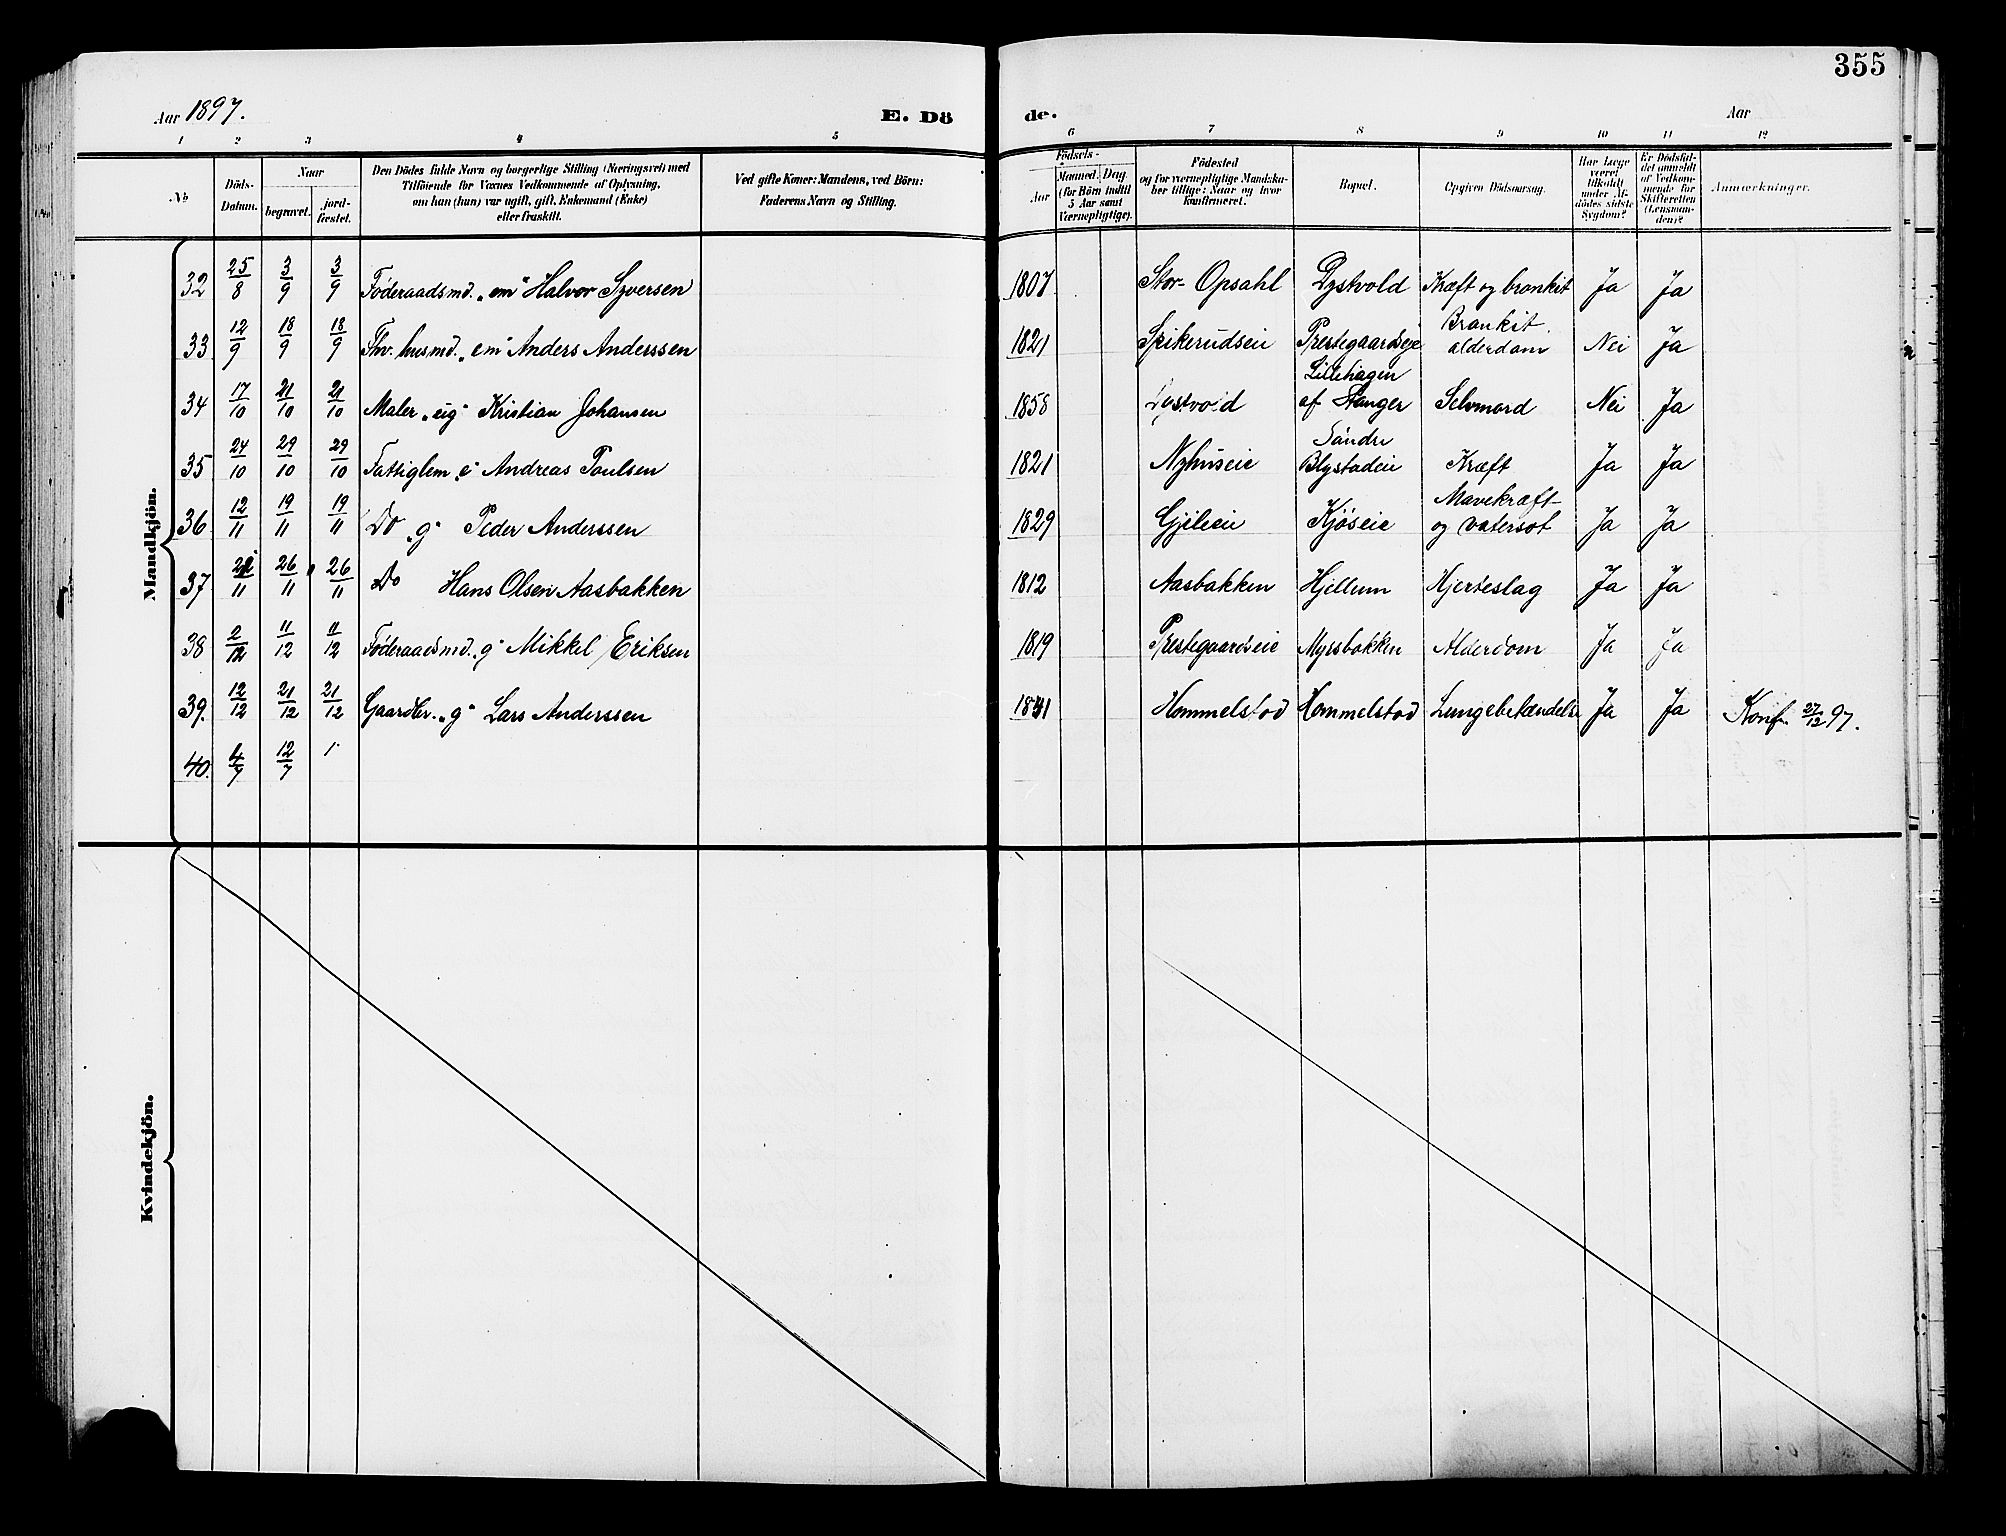 355
Aar 1897.
E. Dö
de.
Aar
1 2 3 4 5 6 7 8 9 10 11 12
No
Döds-Datum.
Naar
begravet.
jord-fæstet.
Den Dödes fulde Navn og borgerlige Stilling (Næringsvei) med
Tilföiende for Voxnes Vedkommende af Oplysning,
om han (hun) var ugift, gift, Enkemand (Enke)
eller fraskilt.
Ved gifte Koner: Mandens, ved Börn:
Faderens Navn og Stilling.
Födsels-
Aar
Maaned. Dag
(for Börn indtil
5 Aar samt
Værnepligtige).
Födested
og for værnepligtige Mandska-
ber tillige: Naar og hvor
konfirmeret.
Bopæl.
Opgiven Dödsaarsag.
Har Læge
været
tilkaldt
under Af-
dödes sidste
Sygdom?
Er Dödsfal-
det anmeldt
af Vedkom-
mende for
Skifteretten
(Lensman-
den)?
Anmærkninger.
Mandkjön.
32 25/8 3/9 3/9 Föderaadsmd. „em" Halvor Syversen 1807 Stor-Opsahl Dystvold Kræft og bronkit Ja Ja
33 12/9 18/9 18/9 Fhv. husmd. „em" Anders Anderssen 1821 Spikerudseie Prestegaardseie Bronkit. alderdom Nei Ja
34 17/10 21/10 21/10 Maler „ug" Kristian Johansen 1858 Dystvold Lillehagen af Stanger Selvmord Nei Ja
35 24/10 29/10 29/10 Fattiglem „e" Andreas Poulsen 1821 Nyhuseie Söndre Blystadeie Kræft Ja Ja
36 12/11 19/11 19/11 Do „g" Peder Anderssen 1829 Gjilieie Kjöseie Mavekræft og vatersot Ja Ja
37 /11 26/11 26/11 Do Hans Olsen Aasbakken 1812 Aasbakken Hjellum Hjerteslag Ja Ja
38 2/12 11/12 11/12 Föderaadsmd. „g" Mikkel Eriksen 1819 Prestegaardseie Myrsbakken Alderdom Ja Ja
39. 12/12 21/12 21/12 Gaardbr. „g" Lars Anderssen 1841 Hommelstad Hommelstad Lungebetændelse Ja Ja Konf. 27/12 97.
40. 4/7 12/7
Kvindekjön.